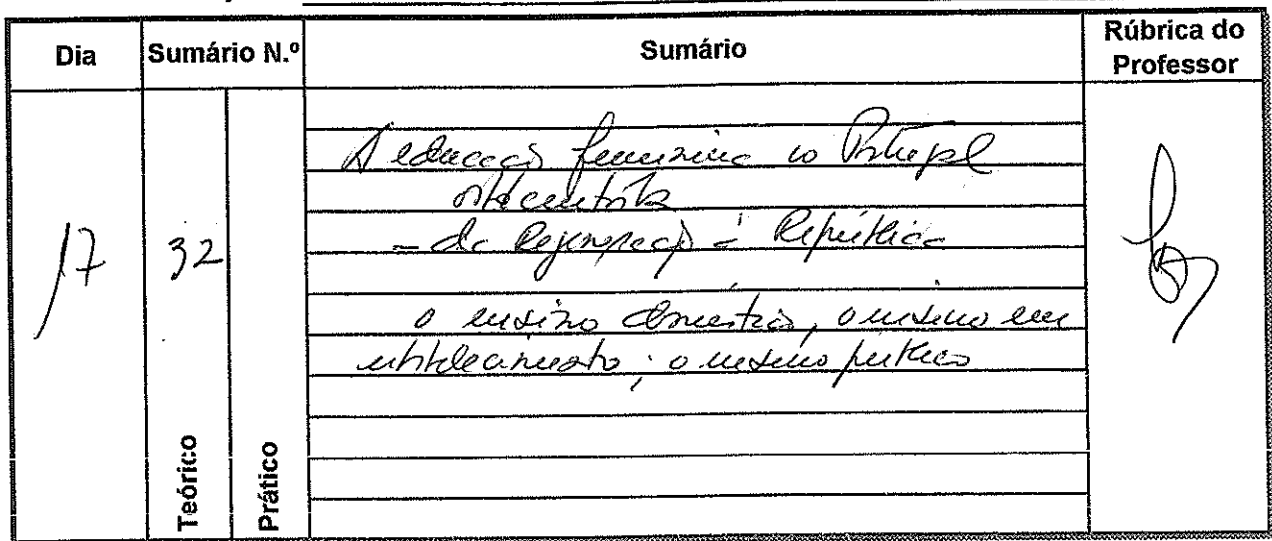 Dia Sumário N.º Sumário Rúbrica do Professor
17 32
A educação feminina no Portugal
oitocentista
- da Regeneração à República
o ensino doméstico, o ensino em
estabelecimento; o ensino público
Teórico Prático